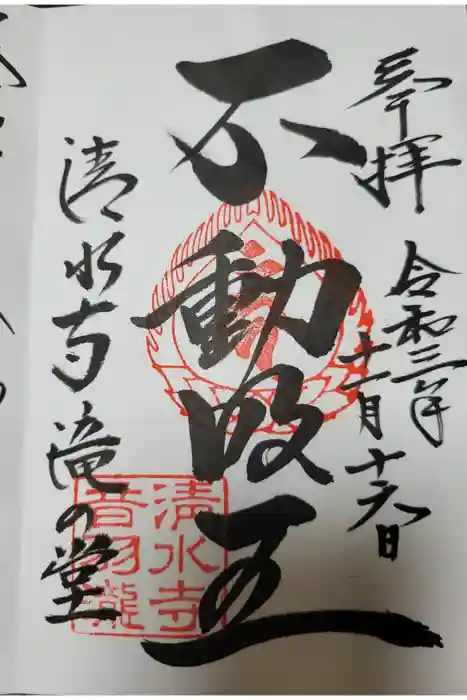 奉拝
令和三年
十一月十六日
不動明王
清水寺滝の堂
清水寺
音羽瀧